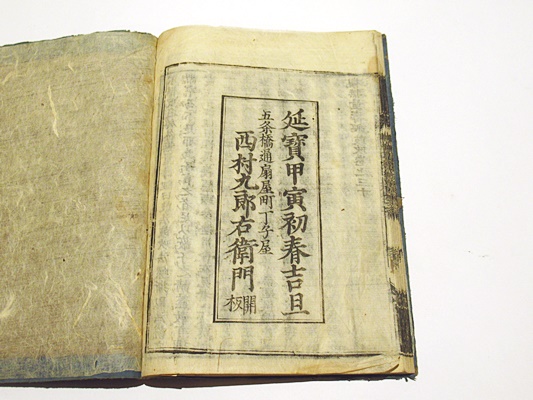 延寳甲寅初春吉旦
五条橋通扇屋町丁子屋
西村九郎右衛門開板